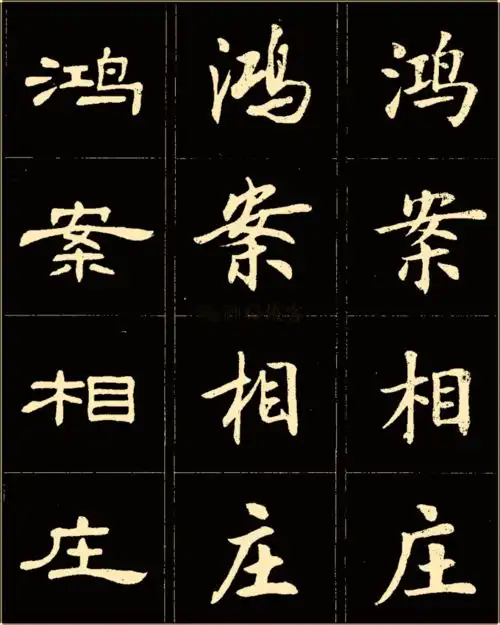 鸿案相庄
鸿案相庄
鸿案相庄